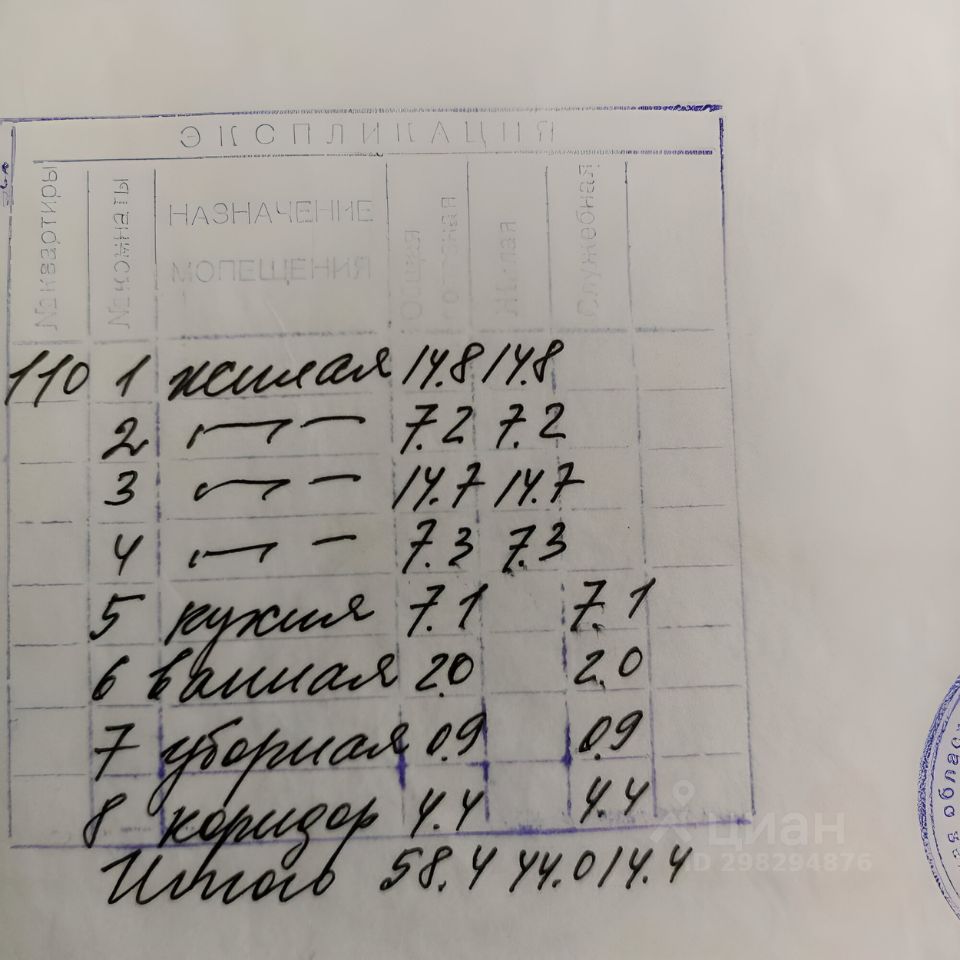 ЭКСПЛИКАЦИЯ
№ квартиры
№ комнаты
НАЗНАЧЕНИЕ
МОПЕЩЕНИЯ
Общая
Жилая
Служебная
110 1 жилая 14.8 14.8
2 —"— 7.2 7.2
3 —"— 14.7 14.7
4 —"— 7.3 7.3
5 кухня 7.1 7.1
6 ванная 2.0 2.0
7 уборная 0.9 0.9
8 коридор 4.4 4.4
Итого 58.4 44.0 14.4
циан
ID 298294876